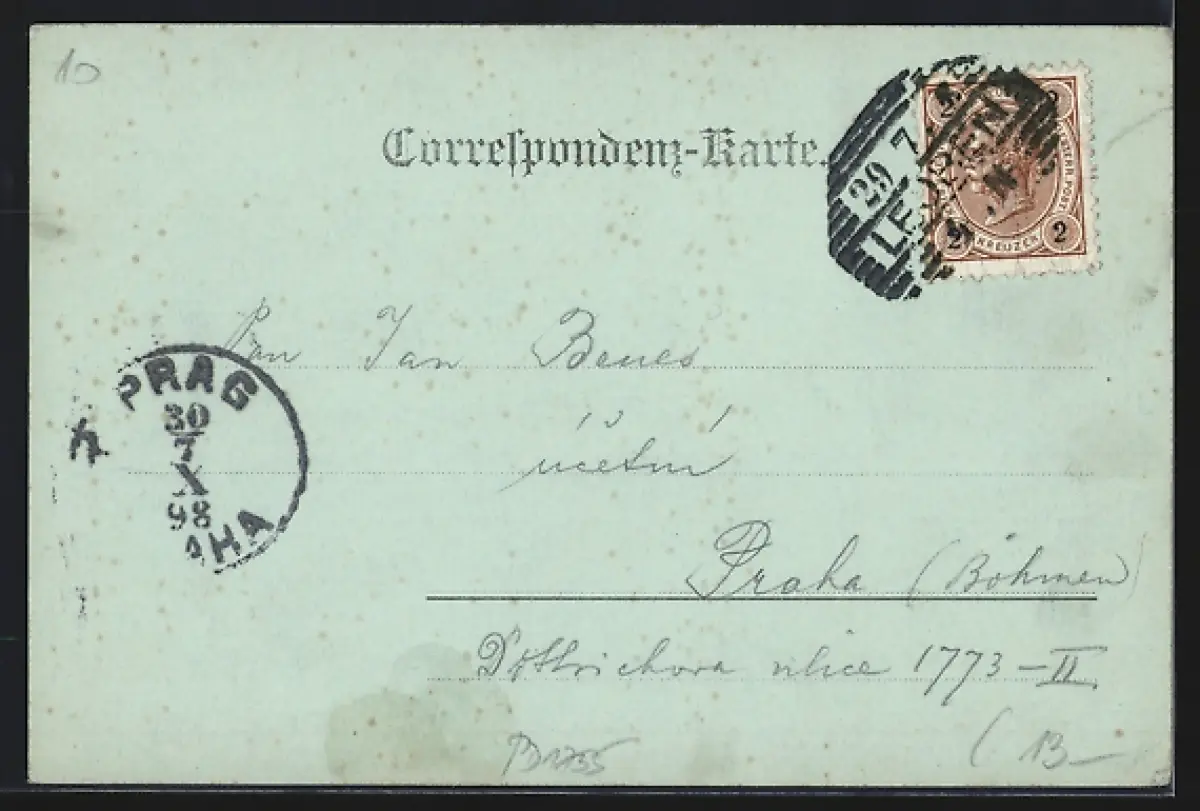 10
Correspondenz-Karte.
29 7
LEVREN
ÖSTERR. POST
2 KREUZER 2
Pan Jan Beneš
účetní
PRAG
30
7
X
98
AHA
Praha (Böhmen)
Dittrichova ulice 1773-II
PD1755
(13-